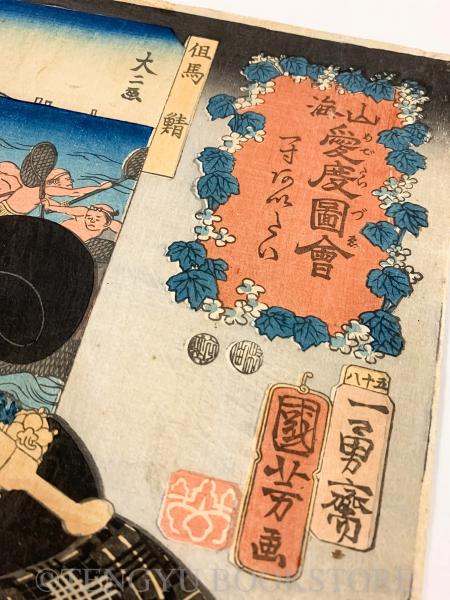 山海
愛度圖會
五十八
一勇齋
國芳画
但馬 鯖
大二画
©TENGYU BOOKSTORE